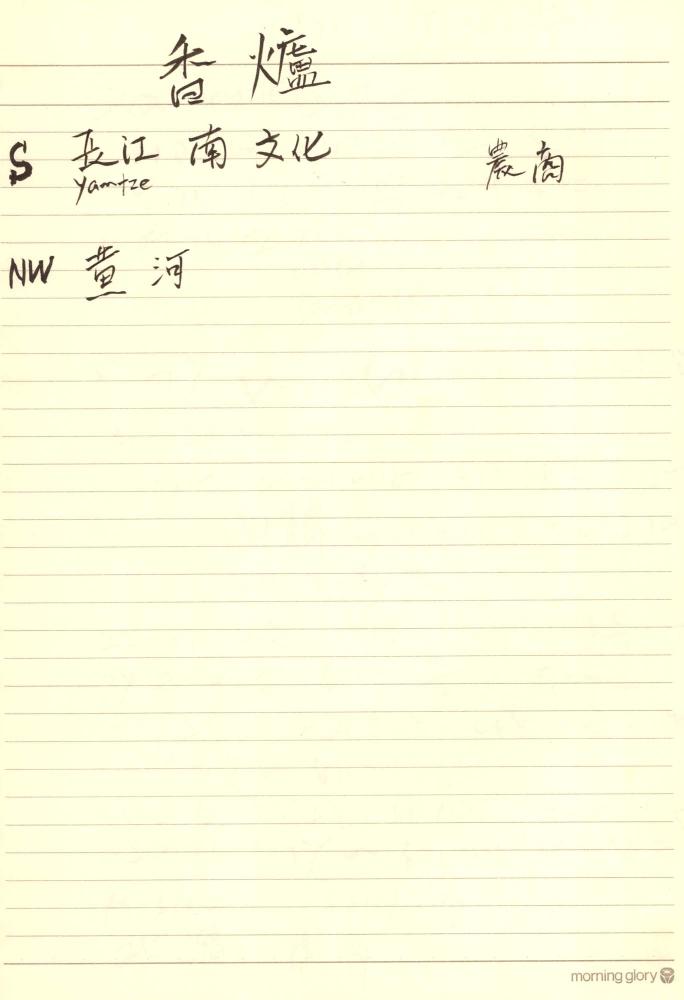 香爐
S 長江 南 文化 農商
Yamtze
NW 黃河
morning glory